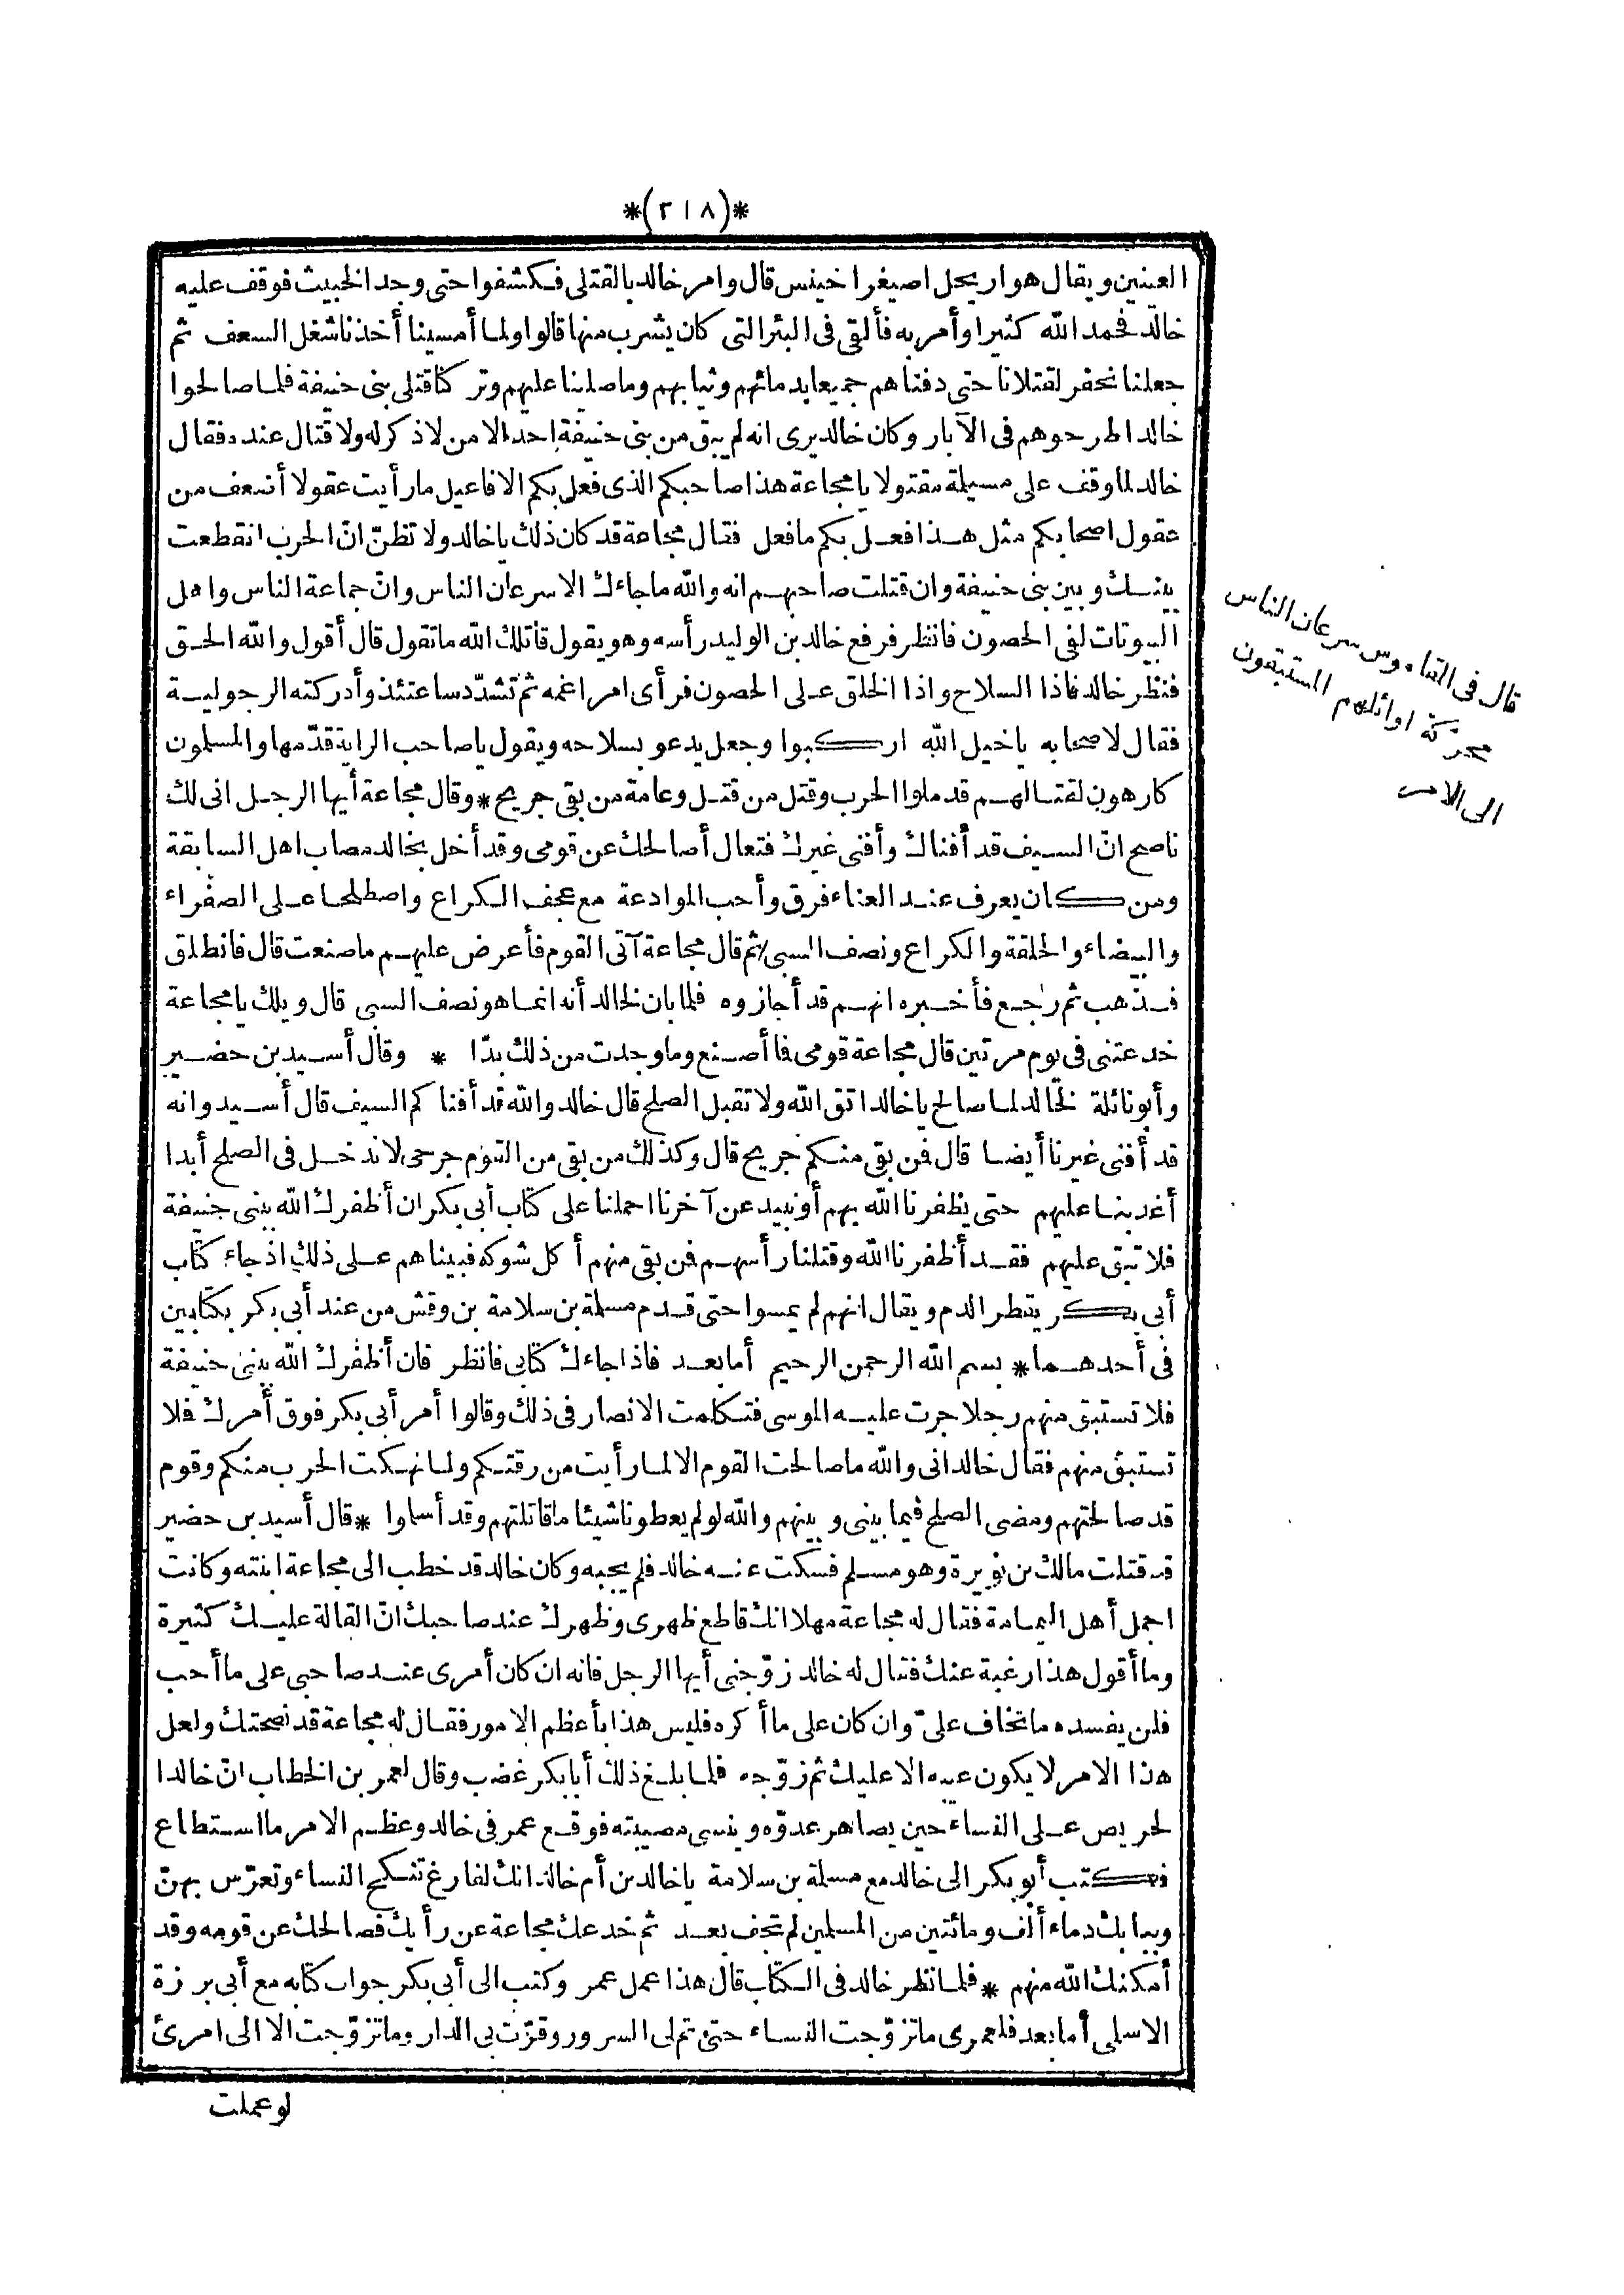 *(٢١٨)*
العينين ويقال هو اريجل اصيغر اخينس قال وامر خالد بالقتلى فكشفوا حتى وجد الخبيث فوقف عليه
خالد فحمد الله كثيرا وأمر به فألقى فى البئر التى كان يشرب منها قالوا ولما أمسينا أخذنا شغل السعف ثم
جعلنا نحفر لقتلانا حتى دفناهم جميعا بدمائهم وثيابهم وما صلينا عليهم وتركنا قتلى بنى حنيفة فلما صالحوا
خالدا طرحوهم فى الآبار وكان خالد يرى انه لم يبق من بنى حنيفة احد الا من لا ذكر له ولا قتال عنده فقال
خالد لما وقف على مسيلمة مقتولا يا مجاعة هذا صاحبكم الذى فعل بكم الافاعيل ما رأيت عقولا أضعف من
عقول اصحابكم مثل هذا فعل بكم ما فعل فقال مجاعة قد كان ذلك يا خالد ولا تظنّ انّ الحرب انقطعت
بينك وبين بنى حنيفة وان قتلت صاحبهم انه والله ما جاءك الا سرعان الناس وانّ جماعة الناس واهل
البيوتات لفى الحصون فانظر فرفع خالد بن الوليد رأسه وهو يقول قاتلك الله ما تقول قال أقول والله الحق
فنظر خالد فاذا السلاح واذا الخلق على الحصون فرأى امرا غمه ثم تشدّد ساعتئذ وأدركته الرجولية
فقال لاصحابه يا خيل الله اركبوا وجعل يدعو بسلاحه ويقول يا صاحب الراية قدّمها والمسلمون
كارهون لقتالهم قد ملوا الحرب وقتل من قتل وعامة من بقى جريح * وقال مجاعة أيها الرجل انى لك
ناصح انّ السيف قد أفناك وأفنى غيرك فتعال أصالحك عن قومى وقد أخل بخالد مصاب اهل السابقة
ومن كان يعرف عند العناء فرق وأحب الموادعة مع عجف الكراع واصطلحا على الصفراء
والبيضاء والحلقة والكراع ونصف السبى ثم قال مجاعة آتى القوم فأعرض عليهم ما صنعت قال فانطلق
فذهب ثم رجع فأخبره انهم قد أجازوه فلما بان لخالد أنه انما هو نصف السبى قال ويلك يا مجاعة
خدعتنى فى يوم مرتين قال مجاعة قومى فما أصنع وما وجدت من ذلك بدّا * وقال أسيد بن حضير
وأبو نائلة لخالد لما صالح يا خالد اتق الله ولا تقبل الصلح قال خالد والله قد أفناكم السيف قال أسيد وانه
قد أفنى غيرنا أيضا قال فمن بقى منكم جريح قال وكذلك من بقى من القوم جرحى لا ندخل فى الصلح أبدا
أغد بنا عليهم حتى يظفرنا الله بهم أو نبيد عن آخرنا احملنا على كتاب أبى بكر ان أظفرك الله ببنى حنيفة
فلا تبق عليهم فقد أظفرنا الله وقتلنا رأسهم فمن بقى منهم أكل شوكة فبيناهم على ذلك اذ جاء كتاب
أبى بكر يقطر الدم ويقال انهم لم يمسوا حتى قدم مسلمة بن سلامة بن وقش من عند أبى بكر بكتابين
فى أحدهما * بسم الله الرحمن الرحيم أما بعد فاذا جاءك كتابى فانظر فان أظفرك الله ببنى حنيفة
فلا تستبق منهم رجلا جرت عليه الموسى فتكلمت الانصار فى ذلك وقالوا أمر أبى بكر فوق أمرك فلا
تستبق منهم فقال خالد انى والله ما صالحت القوم الا لما رأيت من رقتكم ولما نهكت الحرب منكم وقوم
قد صالحتهم ومضى الصلح فيما بينى وبينهم والله لو لم يعطونا شيئا ما قاتلتهم وقد أسلموا * قال أسيد بن حضير
قد قتلت مالك بن نويرة وهو مسلم فسكت عنه خالد فلم يجبه وكان خالد قد خطب الى مجاعة ابنته وكانت
اجمل أهل اليمامة فقال له مجاعة مهلا انك قاطع ظهرى وظهرك عند صاحبك انّ القالة عليك كثيرة
وما أقول هذا رغبة عنك فقال له خالد زوّجنى أيها الرجل فانه ان كان أمرى عند صاحبى على ما أحب
فلن يفسده ما تخاف علىّ وان كان على ما أكره فليس هذا بأعظم الامور فقال له مجاعة قد نصحتك ولعل
هذا الامر لا يكون عيبه الا عليك ثم زوّجه فلما بلغ ذلك أبا بكر غضب وقال لعمر بن الخطاب انّ خالدا
لحريص على النساء حين يصاهر عدوّه وينسى مصيبته فوقع عمر فى خالد وعظم الامر ما استطاع
فكتب أبو بكر الى خالد مع مسلمة بن سلامة يا خالد بن أم خالد انك لفارغ تنكح النساء وتعرّس بهنّ
وببابك دماء ألف ومائتين من المسلمين لم تجف بعد ثم خدعك مجاعة عن رأيك فصالحك عن قومه وقد
أمكنك الله منهم * فلما نظر خالد فى الكتاب قال هذا عمل عمر وكتب الى أبى بكر جواب كتابه مع أبى برزة
الاسلمى أما بعد فلعمرى ما تزوّجت النساء حتى تم لى السرور وقرّت بى الدار وما تزوّجت الا الى امرئ
لو عملت
قال فى القاموس سرعان الناس
محركة اوائلهم المستبقون
الى الامر